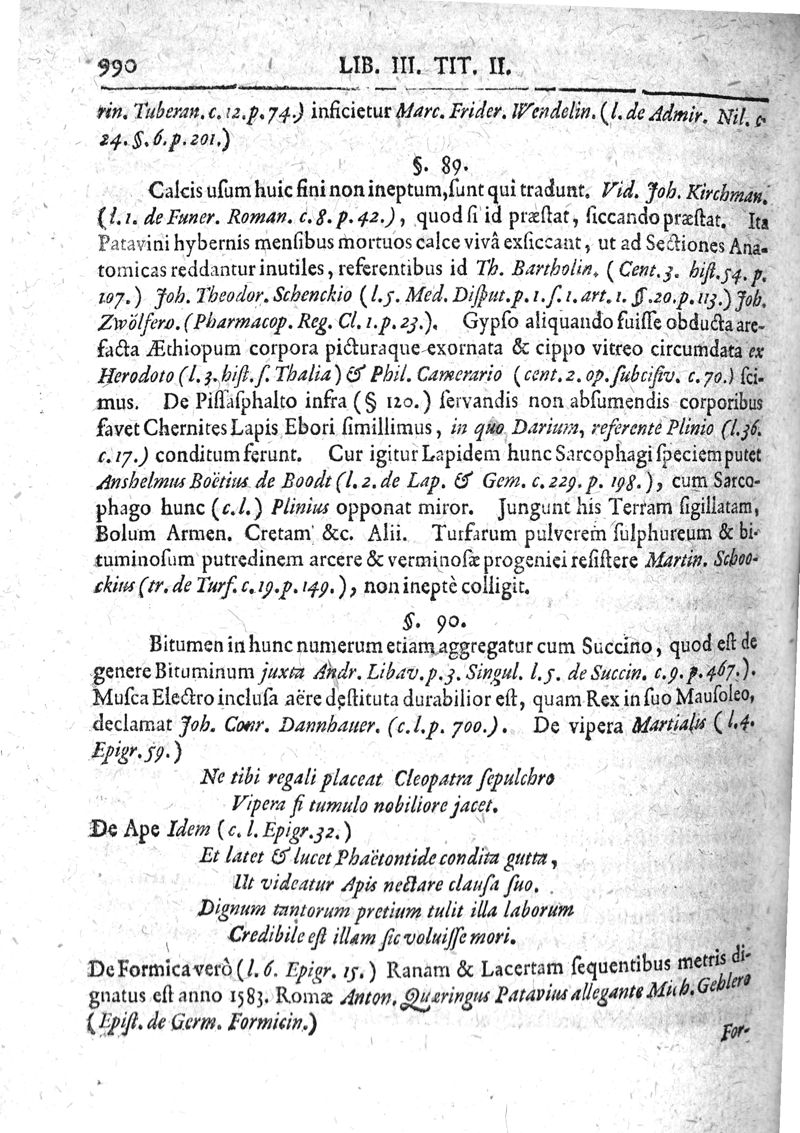 990 LIB. III. TIT. II.
rin. Tuberan. c. 12. p. 74.) inficietur Marc. Frider. Wendelin. (l. de Admir. Nil. c
24. §. 6. p. 201.)
§. 89.
Calcis uſum huic fini non ineptum, ſunt qui tradunt. Vid. Joh. Kirchman.
(l. 1. de Funer. Roman. c. 8. p. 42.), quod ſi id præſtat, ſiccando præſtat. Ita
Patavini hybernis menſibus mortuos calce vivâ exſiccant, ut ad Sectiones Ana-
tomicas reddantur inutiles, referentibus id Th. Bartholin. (Cent. 3. hiſt. 54. p.
107.) Joh. Theodor. Schenckio (l. 5. Med. Diſput. p. 1. ſ. 1. art. 1. §. 20. p. 113.) Joh.
Zwölfero. (Pharmacop. Reg. Cl. 1. p. 23.). Gypſo aliquando fuiſſe obducta are-
facta Æthiopum corpora picturaque exornata & cippo vitreo circumdata ex
Herodoto (l. 3. hiſt. ſ. Thalia) & Phil. Camerario (cent. 2. op. ſubciſiv. c. 70.) ſci-
mus. De Piſſaſphalto infra (§ 120.) ſervandis non abſumendis corporibus
favet Chernites Lapis Ebori ſimillimus, in quo Darium, referente Plinio (l. 36.
c. 17.) conditum ferunt. Cur igitur Lapidem hunc Sarcophagi ſpeciem putet
Anshelmus Boëtius de Boodt (l. 2. de Lap. & Gem. c. 229. p. 198.), cum Sarco-
phago hunc (c. l.) Plinius opponat miror. Jungunt his Terram ſigillatam,
Bolum Armen. Cretam &c. Alii. Turfarum pulverem ſulphureum & bi-
tuminoſum putredinem arcere & verminoſæ progeniei reſiſtere Martin. Schoo-
ckius (tr. de Turf. c. 19. p. 149.), non ineptè colligit.
§. 90.
Bitumen in hunc numerum etiam aggregatur cum Succino, quod eſt de
genere Bituminum juxta Andr. Libav. p. 3. Singul. l. 5. de Succin. c. 9. p. 467.).
Muſca Electro incluſa aëre deſtituta durabilior eſt, quam Rex in ſuo Mauſoleo,
declamat Joh. Conr. Dannhauer. (c. l. p. 700.). De vipera Martialis (l. 4.
Epigr. 59.)
Ne tibi regali placeat Cleopatra ſepulchro
Vipera ſi tumulo nobiliore jacet.
De Ape Idem (c. l. Epigr. 32.)
Et latet & lucet Phaëtontide condita gutta,
Ut videatur Apis nectare clauſa ſuo.
Dignum tantorum pretium tulit illa laborum
Credibile eſt illam ſic voluiſſe mori.
De Formica verò (l. 6. Epigr. 15.) Ranam & Lacertam ſequentibus metris di-
gnatus eſt anno 1583. Romæ Anton. Quæringus Patavius allegante Mich. Geblero
(Epiſt. de Germ. Formicin.)
For-